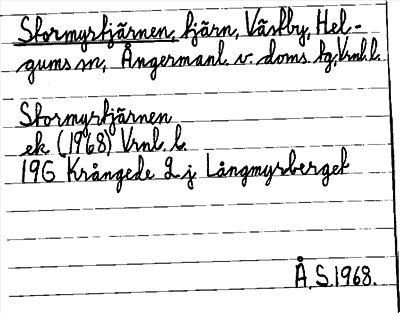 Stormyrtjärnen, tjärn, Västby, Hel-
gums sn, Ångermanl. v. doms. tg, Vrnl. l.
Stormyrtjärnen
ek (1968) Vrnl. l.
19G Krångede 2 j Långmyrberget
Å. S. 1968.